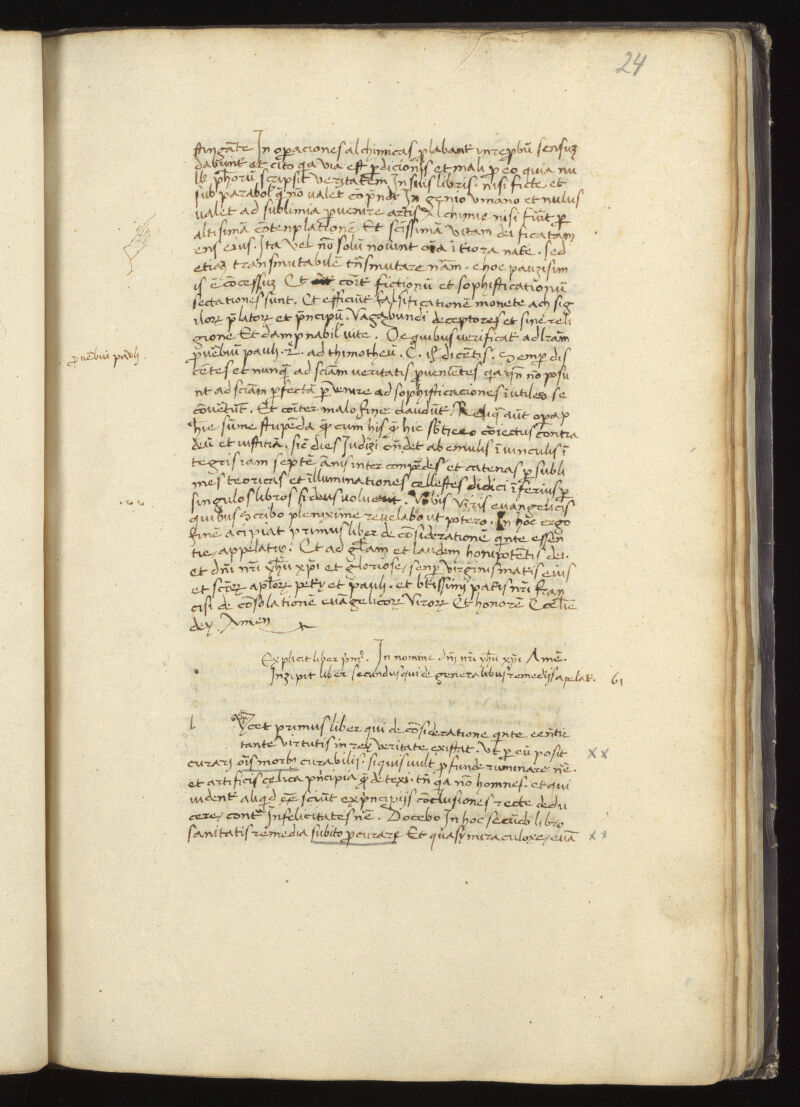 24
fingāte In op̄aciones alchimicas p̄labant in rep̄bū sensuȝ
dabunt et cito q̄a via est p̄dicionis et mali p̄ eo quia nu
llꝰ ph̄orū scripsit veritatem In suis libris nisi ficte et
sub parabol q̄ nō valet cōp̄ndi In genio umano et nulus
valet ad sublimia p̄venire artis Alchimie nisi fu͠it p̄
altisimā cōtenplationē Et sc̄issimā vitam deificatam
ens eius. Ita vel nō solū novunt
etiaȝ transmutabilē tn̄smutare nām. e hoc paucisim
is ē cōcessuȝ Et coīt fictionū et sophifficationū
sectationes sunt. Et efficiūt falsificationē monete ac sig
illoꝝ p̄latoꝝ et p̄ncipū. Vagabundi deceptores et sine reli
gione Et dampnabil vite. De quibus verificat ad lr̄am
pr̄overbiū pauli. 2. ad thimotheū. C. dicētis. Semp̄ dis
cētes et nunq̄ ad sciām veritatis p̄venietes q̄a q̄n nō posu
nt ad sciām p̄fectā p̄venire ad sophifficaciones īutiles se
cōvertūt. Et coīter malo fine claudūt. Reliq̄ aūt opa p
hie sūme stupēda q̄ cum his q̄ hic cōiectus contra
deū et iustitiā. sic̄ dies Iudizi ōn̄det ab emulis ī vinculis ī
tegris iam septē anis inter compedes et catenas p̄ subli
mes teoricas et illuminationes cellestes didici īferius p̄
singulos libros si deus voluerit. Vobis viris evangelicis
quibus scribo plenixime revelabo ut potero. In hoc ergo
fine acipiat primus liber de cōsideratione qn̄te essen
tie, appelatꝰ. Et ad gl̄am et laudem homipotētis dei.
et dn̄i nr̄i yh̄u xp̄i et gloriose, senp̄ virginis matis eius
et sc̄toꝝ apl̄oꝝ petri et pauli. et btissimi patis nr̄i fran
cisi de cōsolatione evāgelicoꝝ viroꝝ Et honorē Celie
dey. Amen
p̄verbiū pauli.
Explicit liber p̄mꝰ. In nomine dn̄i nr̄i yh̄u xp̄i Amē.
Inzipit liber secundus qui de generalibus remediis apelat. 61
l Ycet primus liber qui de cōsideratione qn̄te cēntie
tante virtutis in rey veritate existat. ut p̄ eū posit
curari ōis morbꝰ curabilis. si quis vult p̄funde ruminare nē.
et artificis celica p̄ncipia q̄ detexi. tn̄ q̄a nō homnes. et qui
vident aliq̄d eē sciūt ex p̄ncipijs cōclusiones recte dedu
cere, contͣ Infelicitates nē. Docebo In hoc secūdo libro
sanitatis remedia subito p̄curare Et quasy miraculoxe, evā
x x
x 8